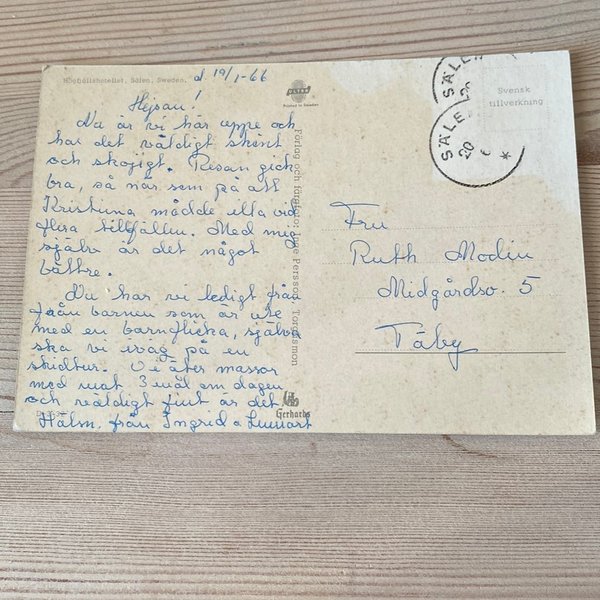 Högfjällshotellet, Sälen, Sweden.
d. 19/1-66
Hejsan!
Nu är vi här uppe och
har det väldigt skönt
och skojigt. Resan gick
bra, så när som på att
Kristiina mådde illa vid
flera tillfällen. Med mig
själv är det något
bättre.
Nu har vi ledigt från
från barnen som är ute
med en barnflicka, själva
ska vi iväg på en
skidtur. Vi äter massor
med mat 3 mål om dagen
och väldigt fint är det.
Hälsn. från Ingrid o Lennart
ULTRA
Printed in Sweden
Förlag och färgfoto: Persson, Torgåsmon
Gerhards
SÄLEN
SÄLE
20
Svensk
tillverkning
Fru
Ruth Modin
Midgårdsv. 5
Täby